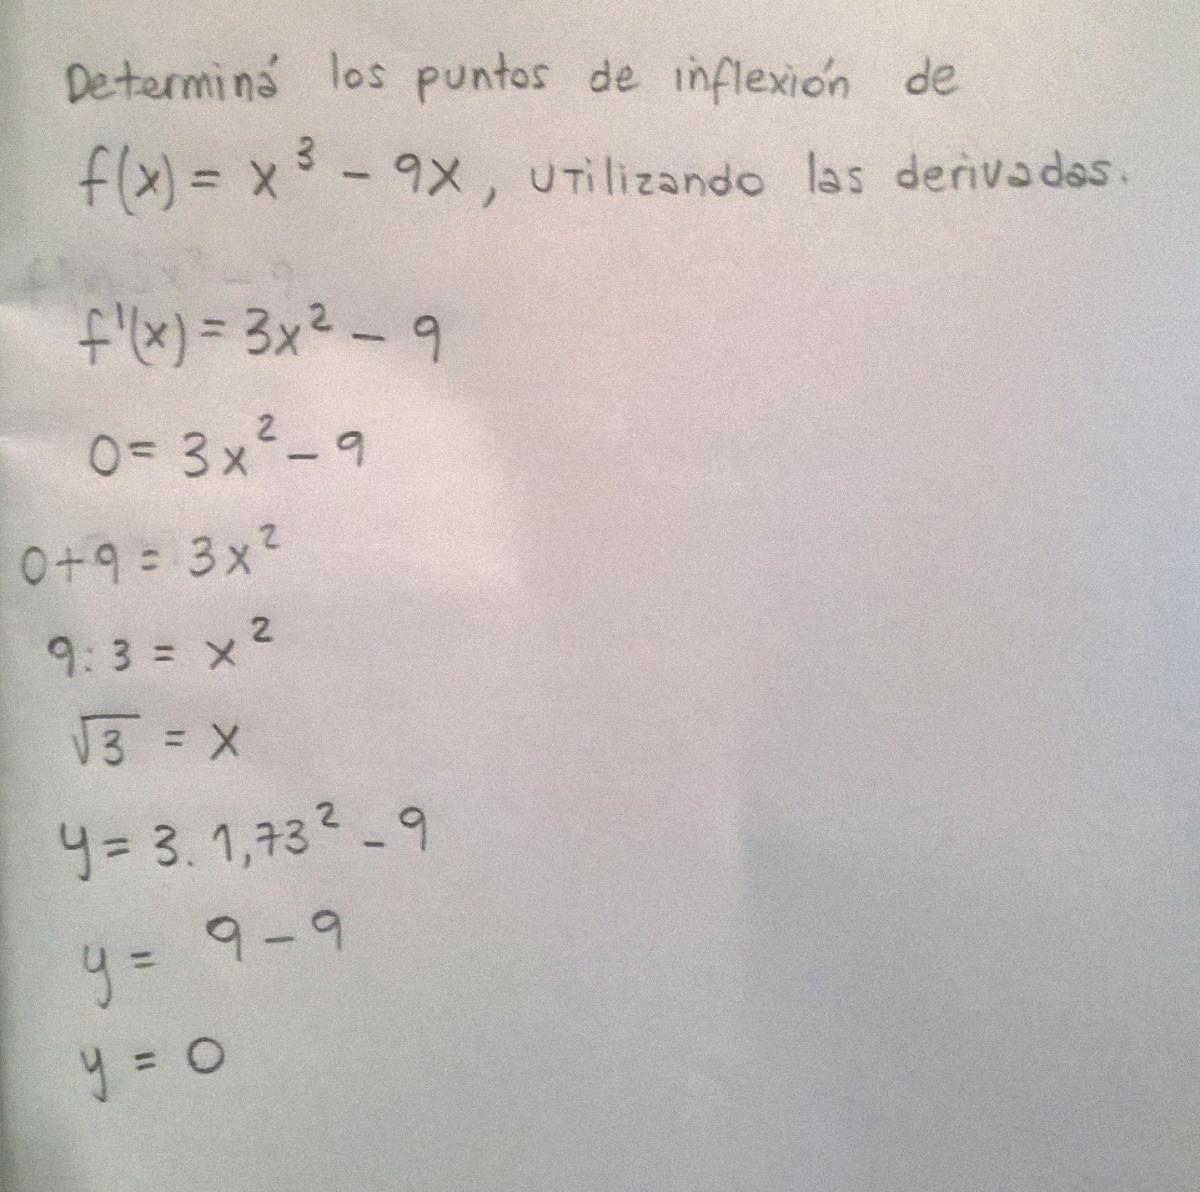 Determiná los puntos de inflexión de
f(x) = x³ - 9x, utilizando las derivadas.
f'(x) = 3x² - 9
0 = 3x² - 9
0+9 = 3x²
9:3 = x²
√3 = x
y = 3. 1,73² - 9
y = 9 - 9
y = 0